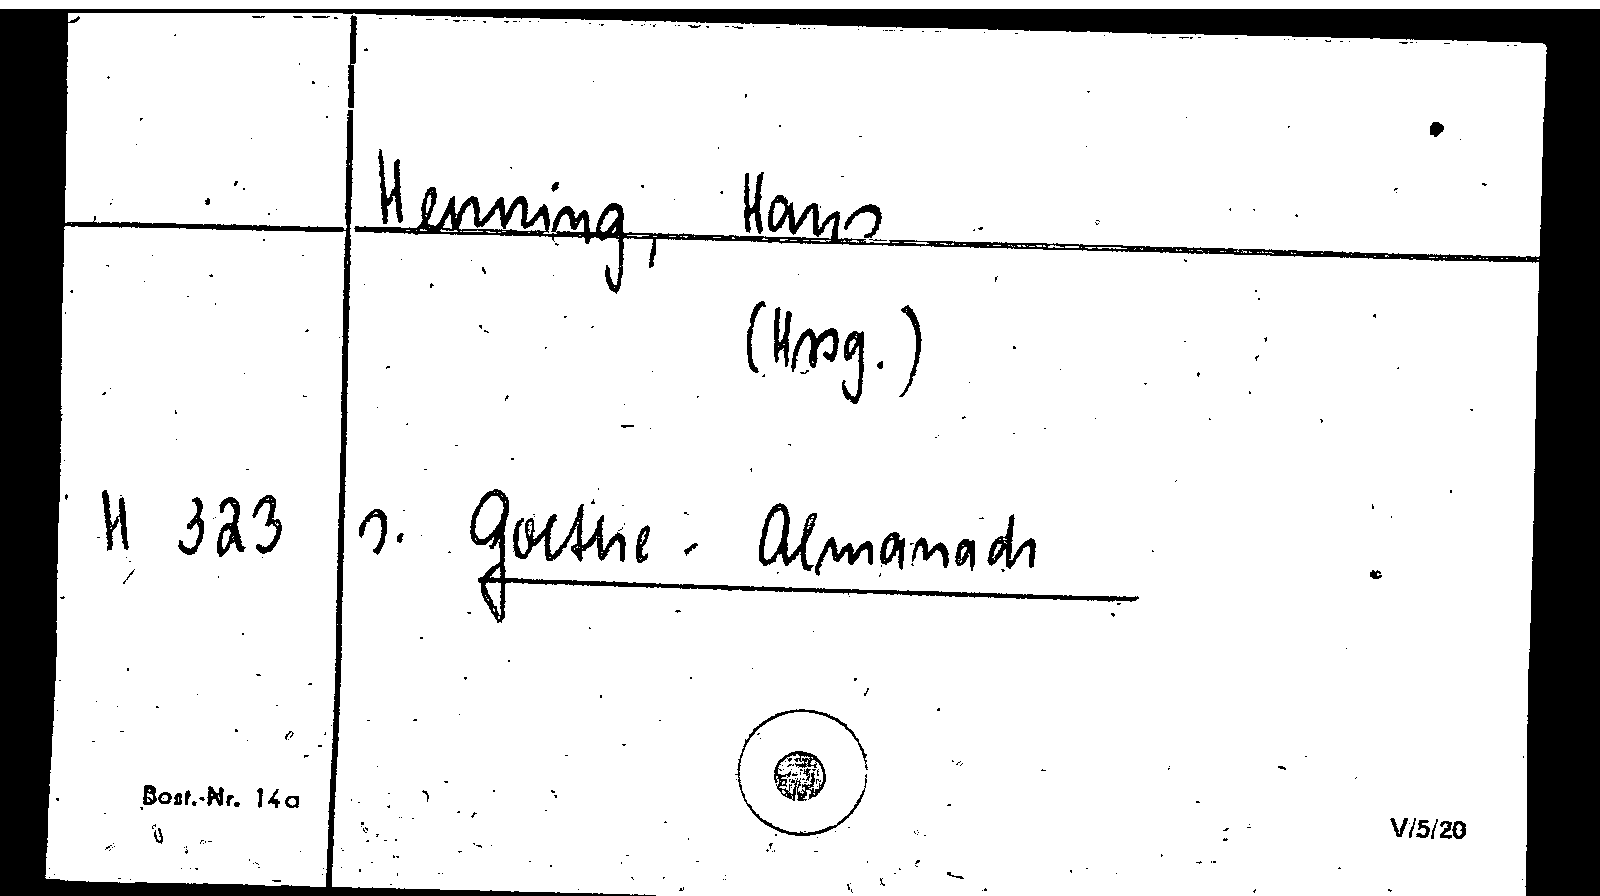 Henning, Hans
(Hrsg.)
H 323 s. Goethe - Almanach
Best.-Nr. 14a
V/5/20